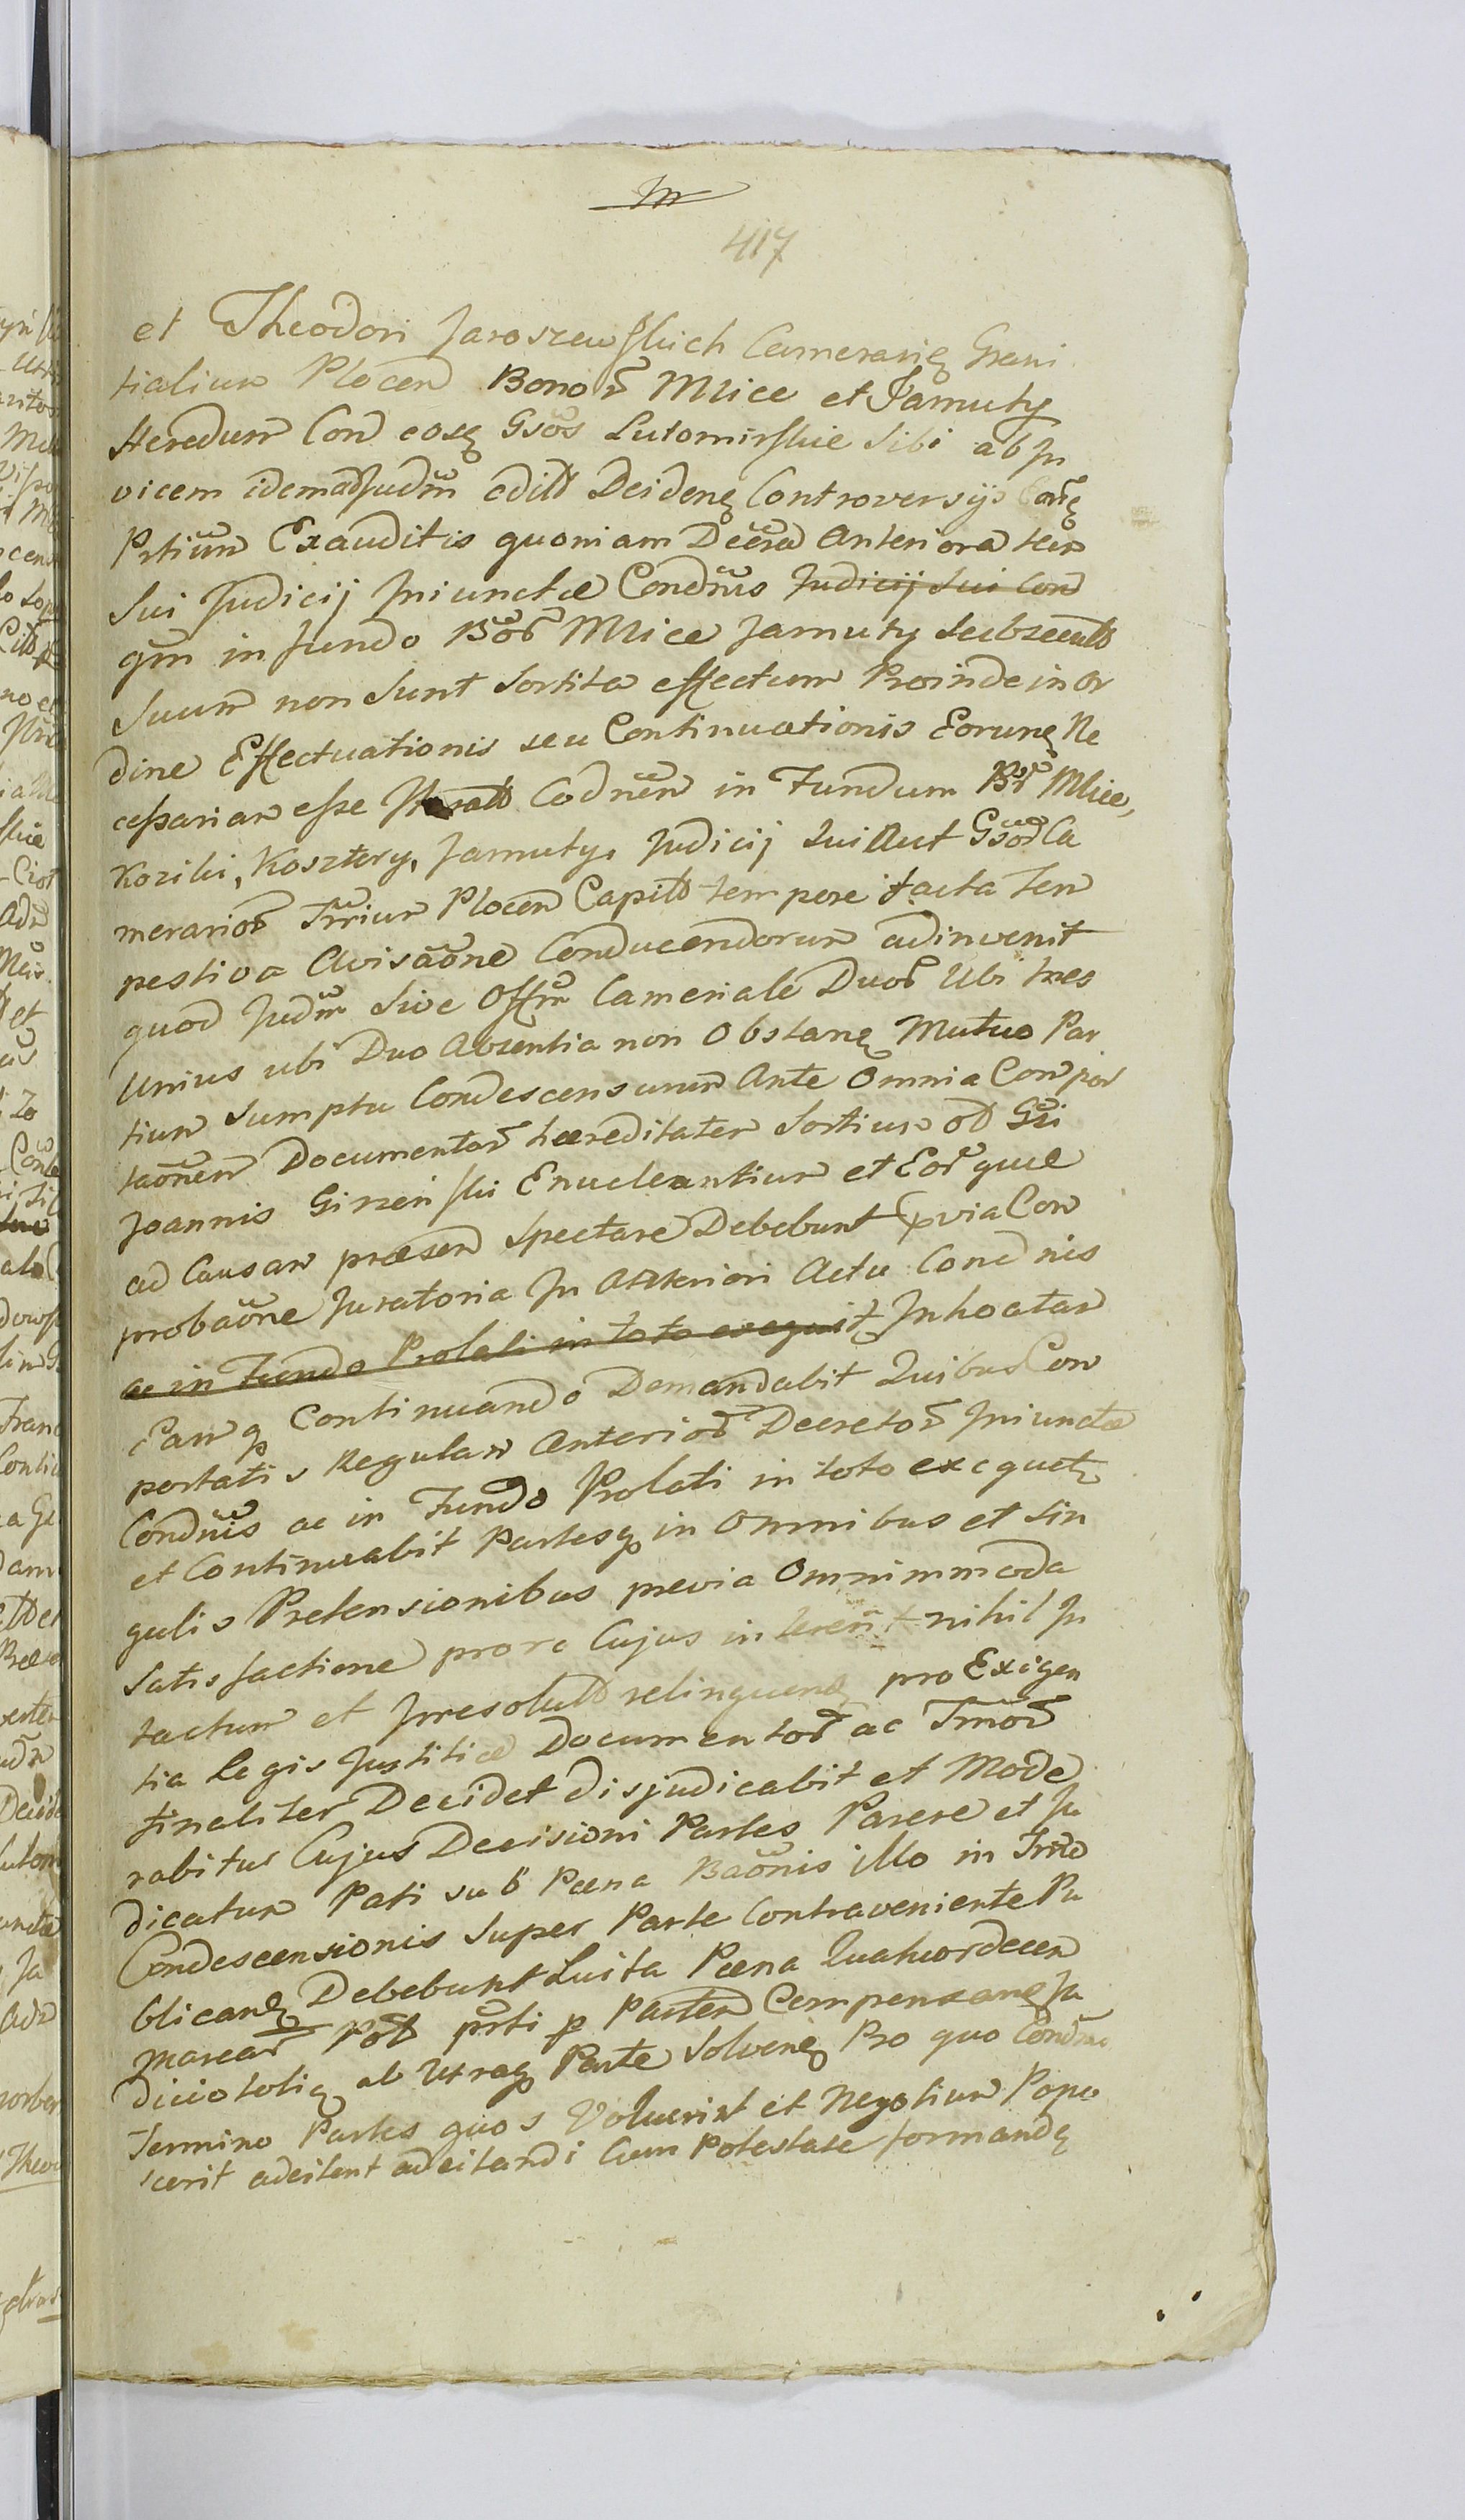 m
417
et Theodori Jaroszewskich Camerarię Grani
tialium Plocen Bonor Mlice et Jamuty
Heredum Con eosę Gsos Lutomirskie Sibi ab Jn
vicem idemad Judm edilt Deidenę Controversijs
Prtium Exauditis quoniam Decra Anteriora tum
Sui Judicij Iniunctæ Condnis Judicij Sui Con
qm in fundo Bor Mlice Jamuty Subsecut
Suum non Sunt Sortita effectum Proinde in Or
dine Effectuationis seu Continuationis Eorunę Ne
cessariam esse Codnen in Fundum Br Mlice,
Koziki, Kosztery, Jamuty, Judicij Sui Aut Gsor Ca
merarior Trrium Plocen Capilt tempore facta Tem
pestiva Avisaone Conducendorum adinvenit
quod Judm Sive Offm Cameriale Duor Ubi tres
Unius ubi Duo Absentia non Obstanę Mutuo Par
tium Sumptu Condescensurum Ante Omnia Compor
taonem Documentor hæreditatem Sortium ol Gsi
Joannis Girzenski Enucleantium et Eor quæ
ad Causam præsen Spectare Debebunt prvia Com
probaone Juratoria In Anteriori Actu Cond nis
ac in Fundo Prolati in toto exequit Inhoatam
Eamq Continuando Demandabit Quibus Com
portatis Regulam Anterior Decretor Iniunctæ
Condnis ac in Fundo Prolati in toto exequet
et Continuabit Partesq in Omnibus et Sin
gulis Pretensionibus previa Omnimmoda
Satisfactione pro re Cujus intererit nihil In
tactum et Irresolut relinquenę pro Exigen
tia Legis Justitiæ Documentor ac Trmor
finaliter Decidet disjudicabit et Mode
rabitur Cujus Decisioni Partes Parere et Ju
dicatum Pati sub Pæna Baonis illo in Trmo
Condescensionis Super Parte Contraveniente Pu
blicanę Debebunt Luita Pæna Quatuordecem
marcar Pol prti p Partem Compensanę Ju
dicio totię ab Utraq Parte Solvenę Pro quo Condnis
Termino Partes quos Voluerint et Negotium Popo
scerit adcitent adcitandi Cum Potestate formandę